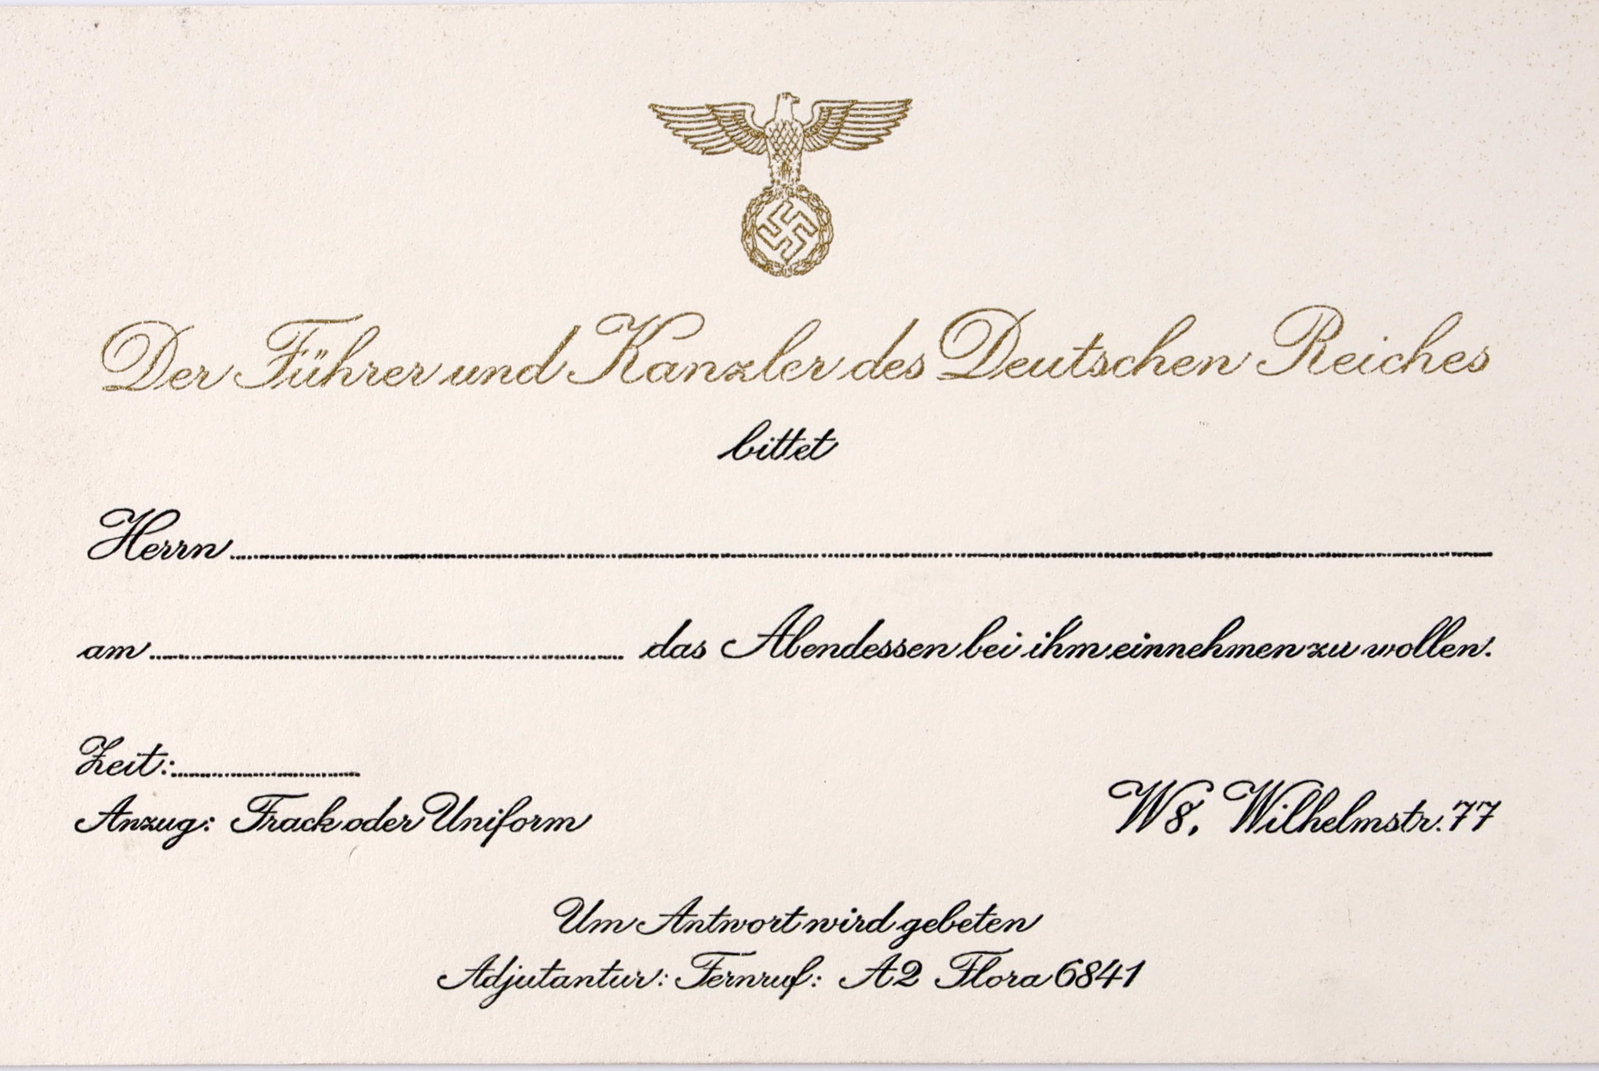 Der Führer und Kanzler des Deutschen Reiches
bittet
Herrn
am das Abendessen bei ihm einnehmen zu wollen.
Zeit:
Anzug: Frack oder Uniform
W8, Wilhelmstr. 77
Um Antwort wird gebeten
Adjutantur: Fernruf: A2 Flora 6841